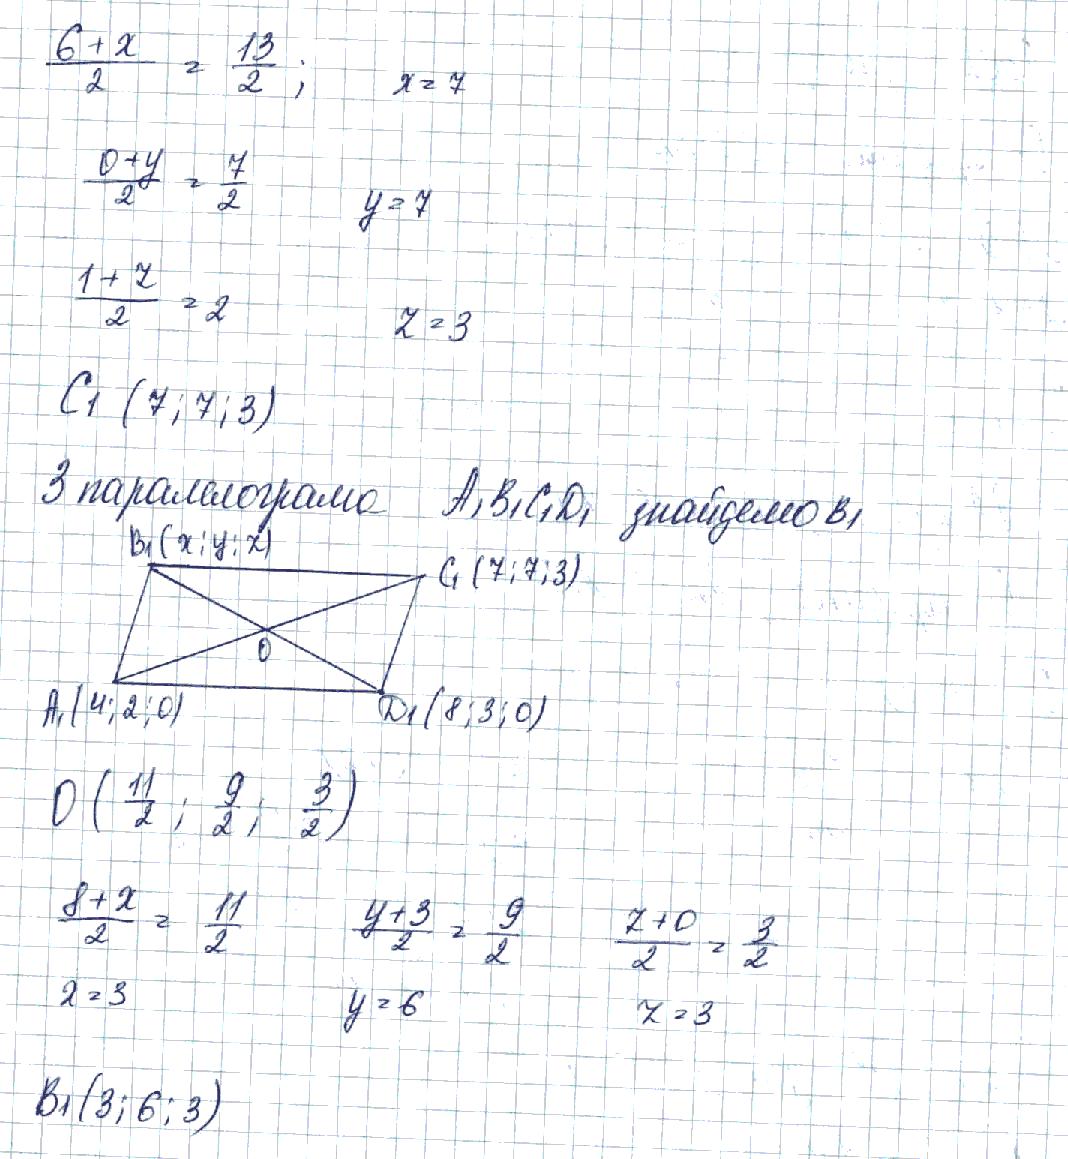 6+x/2 = 13/2; x=7
0+y/2 = 7/2 y=7
1+z/2 = 2 z=3
C1 (7;7;3)
З паралелограма A1B1C1D1 знайдемо B1
B1(x;y;z)
C1 (7;7;3)
O
A1(4;2;0) D1(8;3;0)
O (11/2; 9/2; 3/2)
8+x/2 = 11/2 y+3/2 = 9/2 z+0/2 = 3/2
x=3 y=6 z=3
B1(3;6;3)